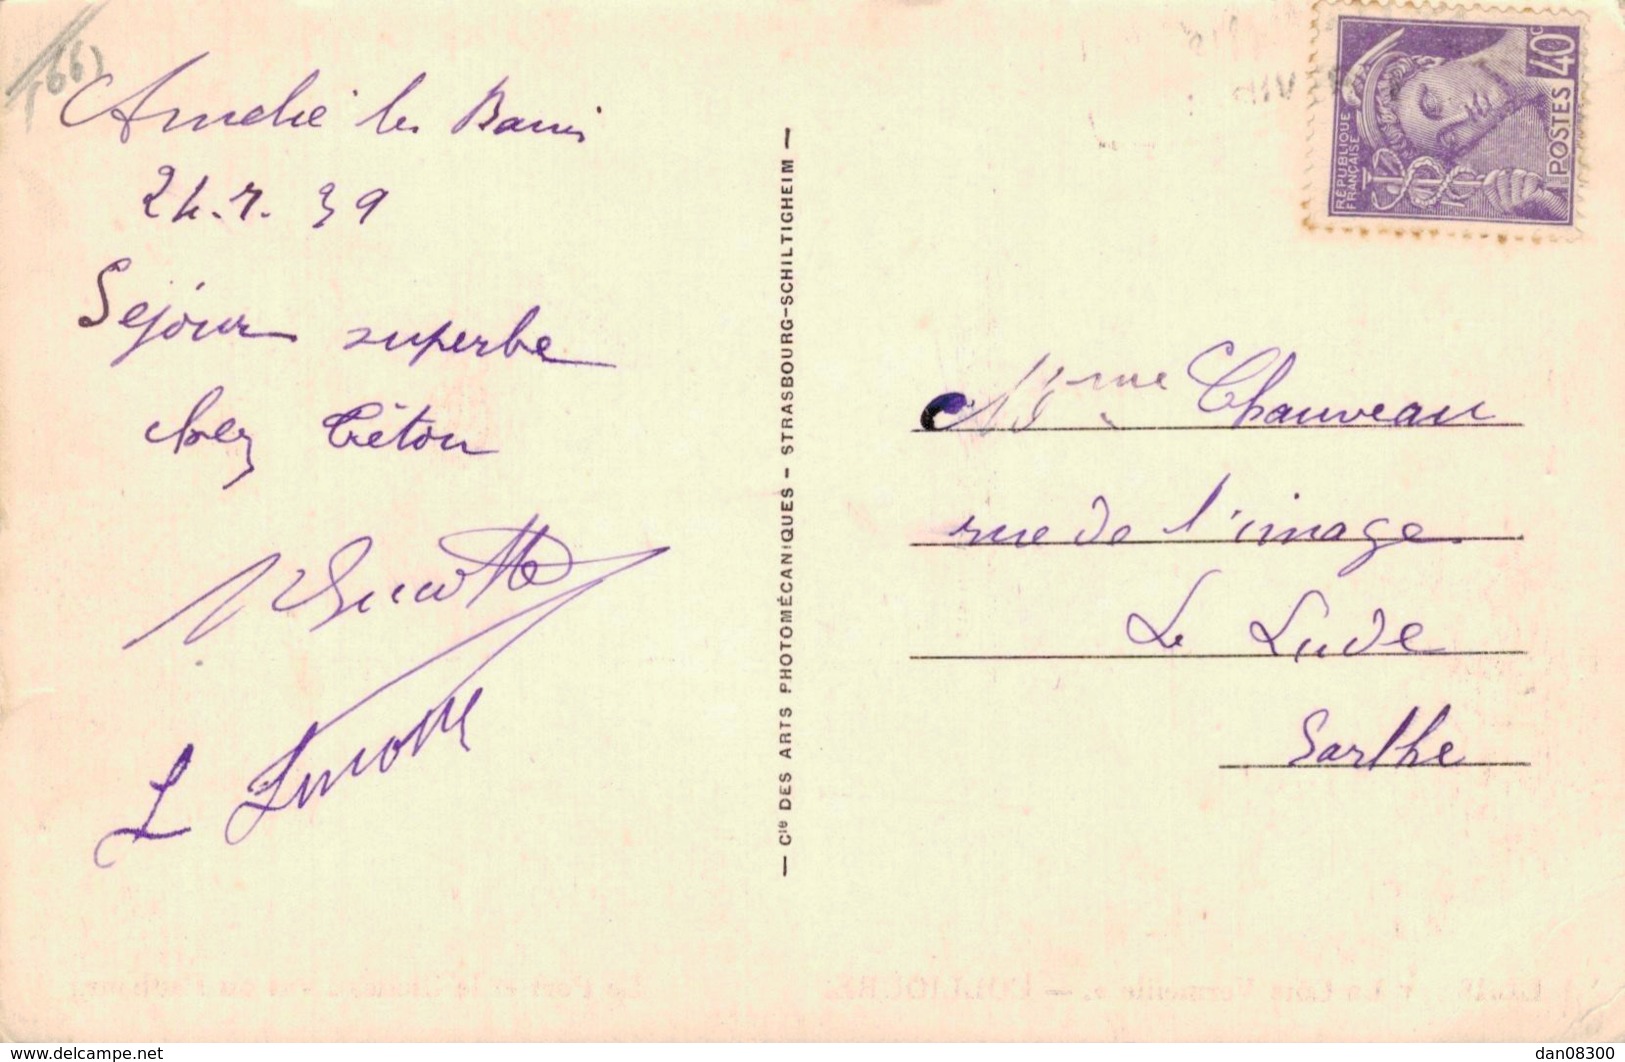 (66)
Amélie les Bains
24.7.39
Séjour superbe
chez Créton
L Lucotte
— Cie DES ARTS PHOTOMÉCANIQUES — STRASBOURG-SCHILTIGHEIM —
RÉPUBLIQUE
FRANÇAISE
POSTES 40c
Mme Chauveau
rue de l'image
Le Lude
Sarthe
dan08300
www.delcampe.net